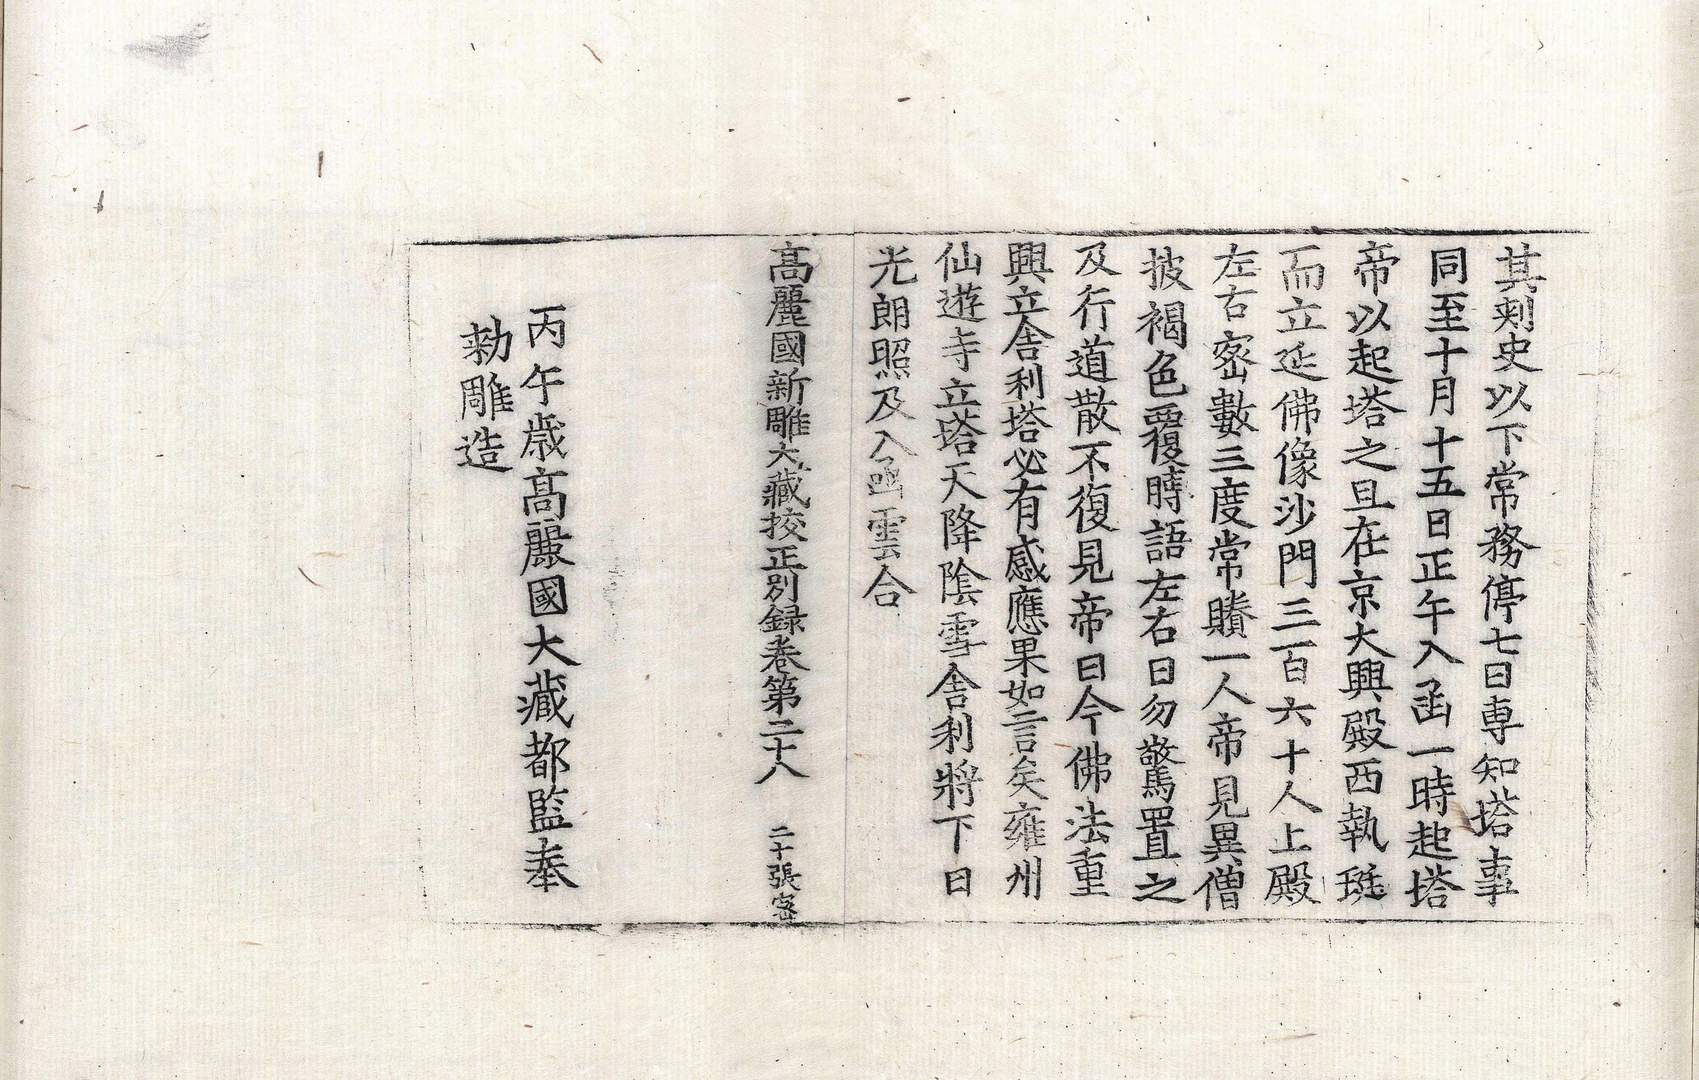 其刾史以下常務停七日専知塔事
同至十月十五日正午入函一時起塔
帝以起塔之旦在京大興殿西執珽
而立延佛像沙門三百六十人上殿
左右密數三度常賸一人帝見異僧
披褐色覆髆語左右曰勿驚置之
及行道散不復見帝曰今佛法重
興立舎利塔必有感應果如言矣雍州
仙遊寺立塔天降陰雪舎利將下日
光朗照及入函雲合
髙麗國新雕大藏挍正別録卷第二十八 二十張 密
丙午歳髙麗國大藏都監奉
勑雕造